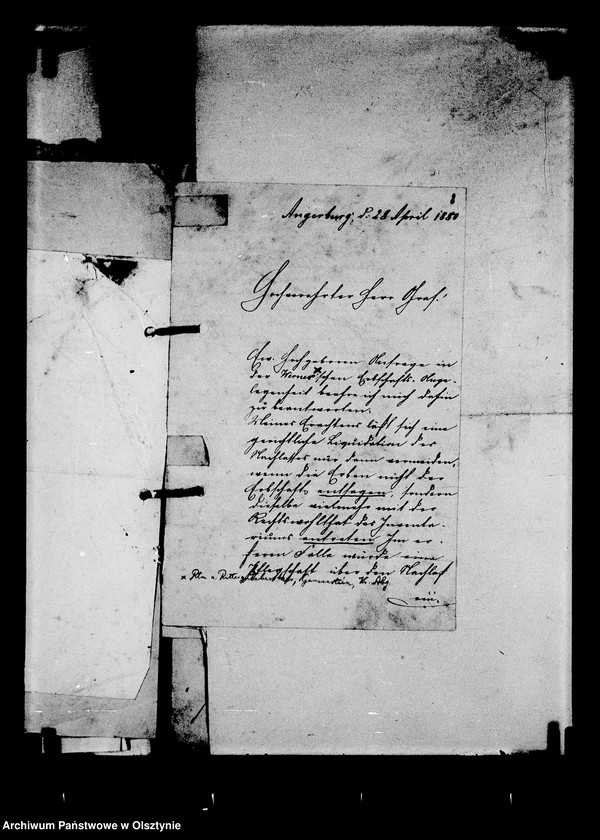 8
Angerburg, d. 28 April 1880
Hochverehrter Herr Graf!
Ew. Hochgeboren Anfrage in
der Erbschafts-Ange-
legenheit beehre ich mich dahin
zu beantworten.
Meines Erachtens läßt sich eine
gerichtliche Liquidation des
Nachlasses nur dann vermeiden,
wenn die Erben nicht der
Erbschaft entsagen, sondern
dieselbe vielmehr mit der
Rechtswohlthat des Inventa-
riums antreten. Im er-
steren Falle würde eine
Pflegschaft über den Nachlaß
ein-
Archiwum Państwowe w Olsztynie